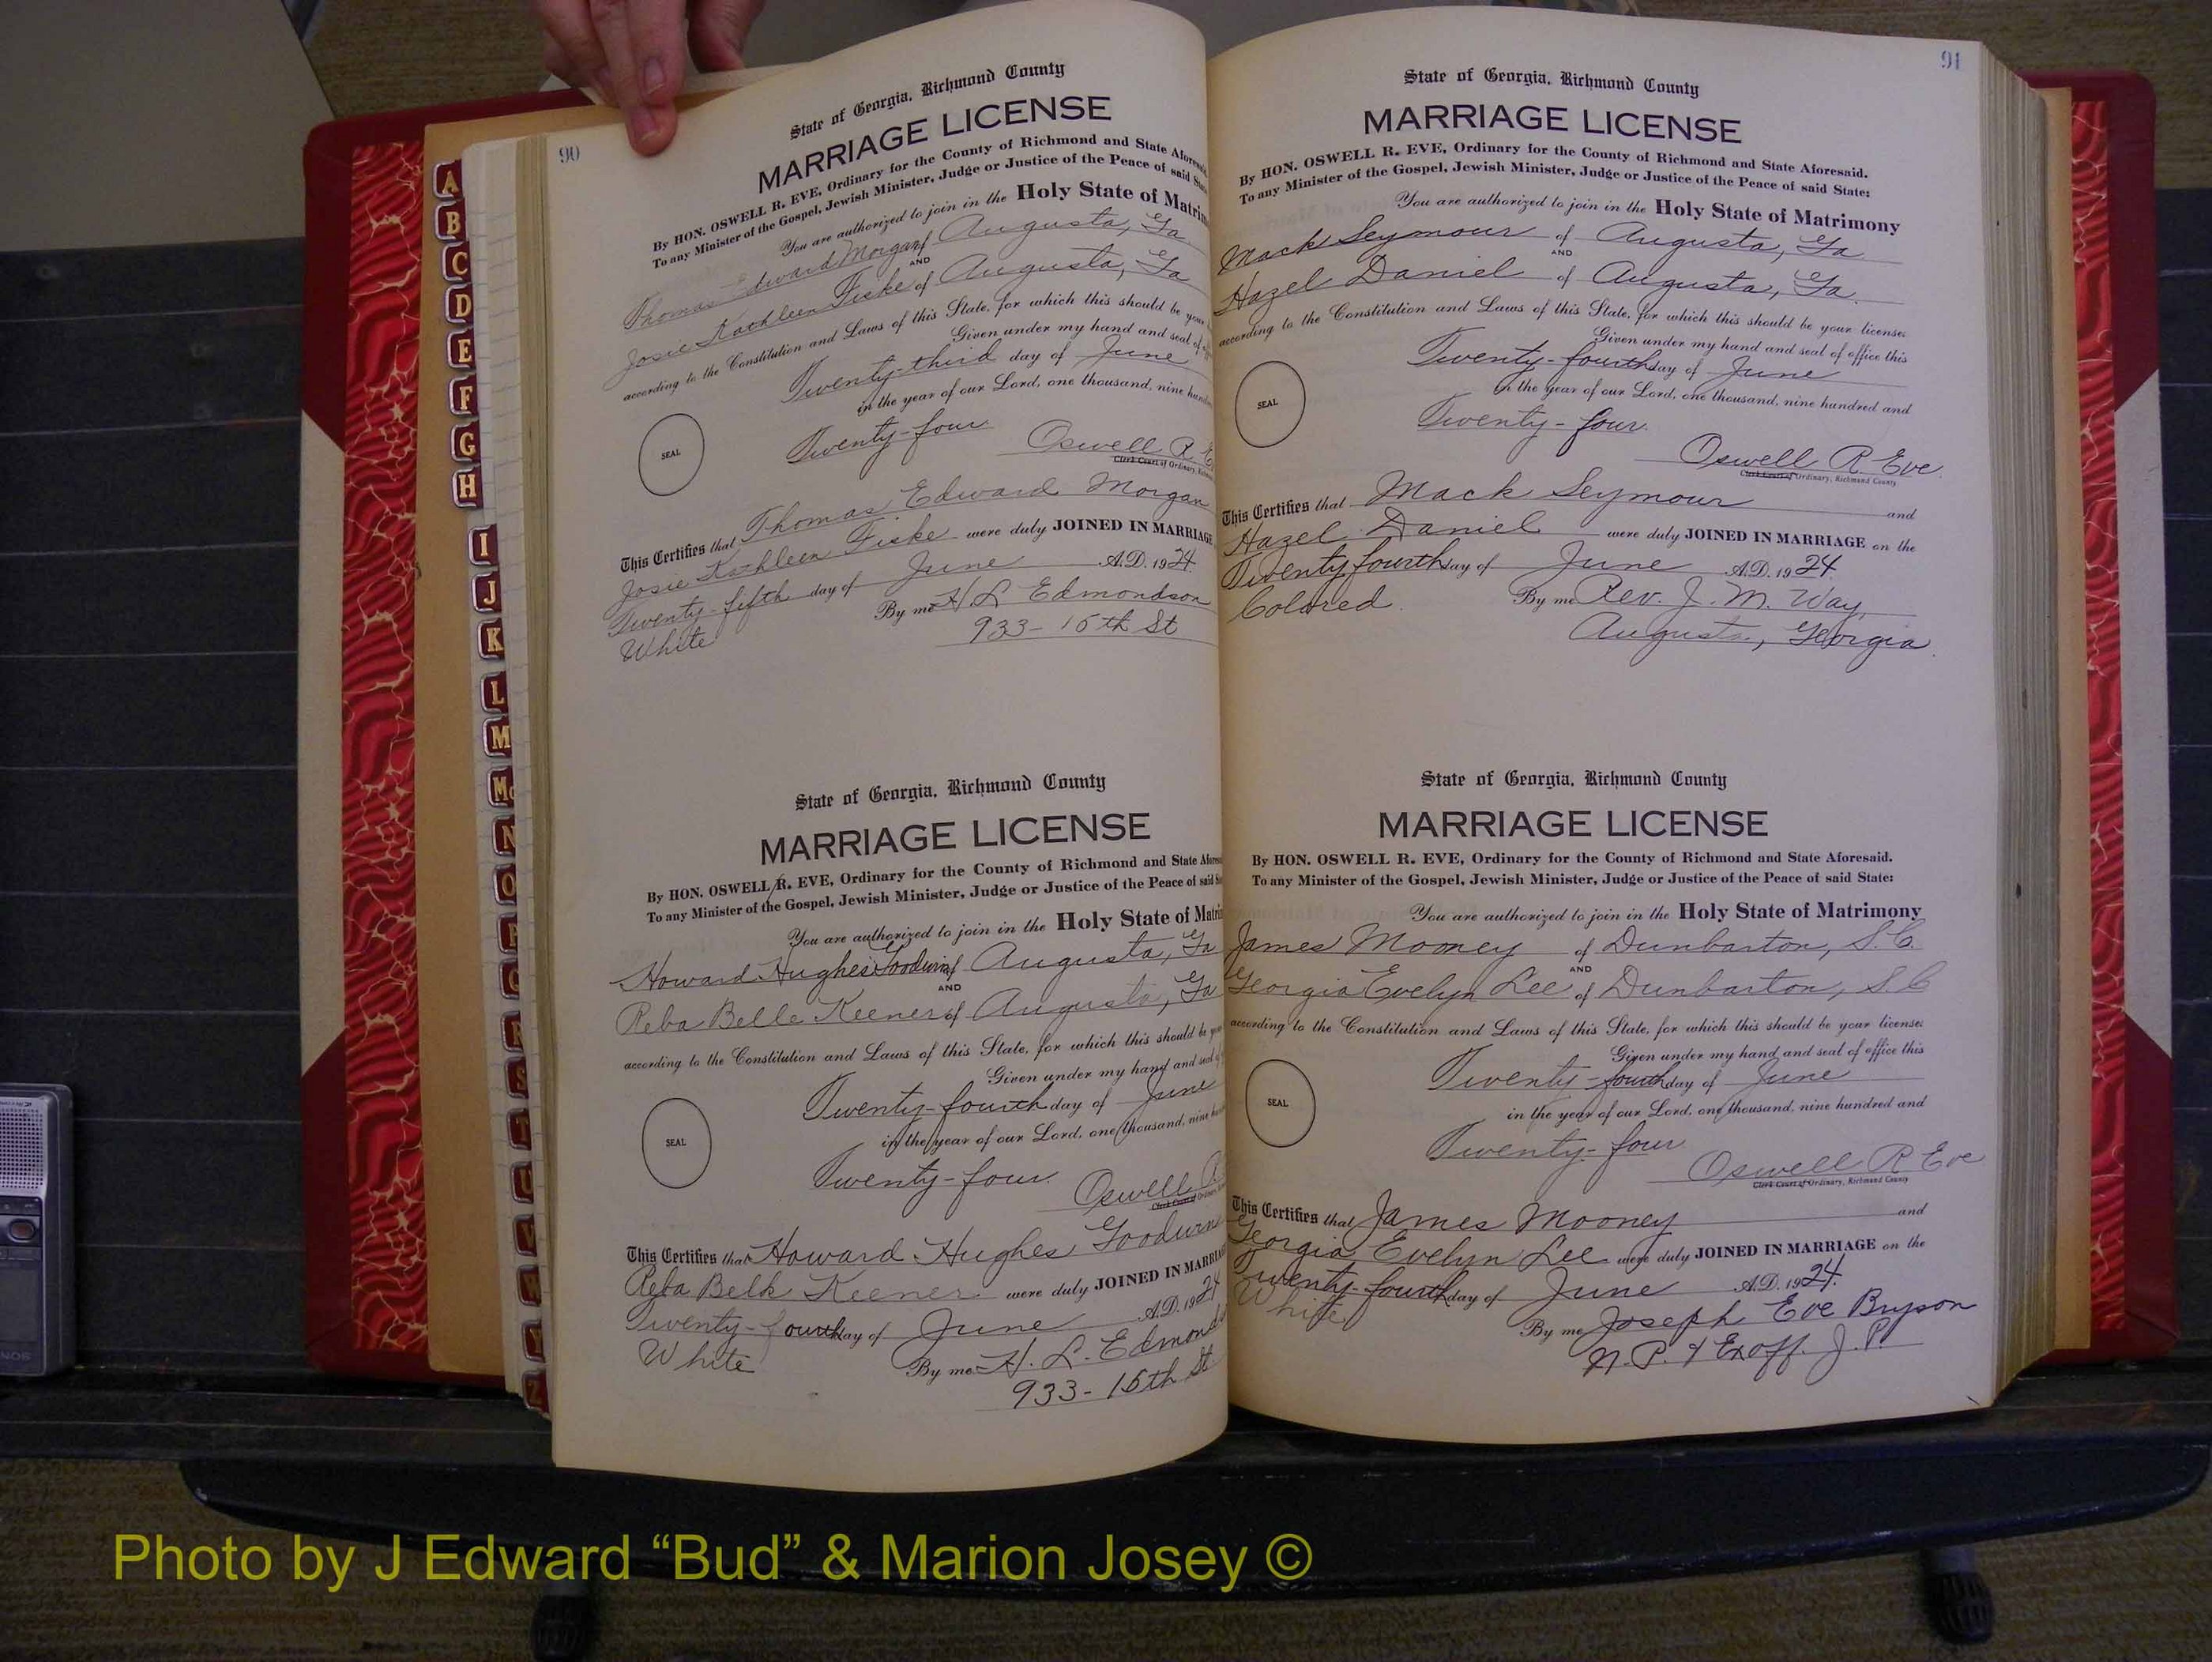 90
State of Georgia, Richmond County
MARRIAGE LICENSE
By HON. OSWELL R. EVE, Ordinary for the County of Richmond and State Aforesaid.
To any Minister of the Gospel, Jewish Minister, Judge or Justice of the Peace of said State
You are authorized to join in the Holy State of Matrim
Thomas Edward Morgan of Augusta, Ga
AND
Josie Kathleen Fiske of Augusta, Ga
according to the Constitution and Laws of this State, for which this should be your
Given under my hand and seal of
Twenty-third day of June
in the year of our Lord, one thousand, nine hundred
SEAL
Twenty-four
Oswell R E
Clerk Court of Ordinary, Richmond
This Certifies that Thomas Edward Morgan
Josie Kathleen Fiske were duly JOINED IN MARRIAGE
Twenty-fifth day of June A.D. 1924
White By me H. L Edmondson
933-15th St
State of Georgia, Richmond County
MARRIAGE LICENSE
By HON. OSWELL R. EVE, Ordinary for the County of Richmond and State Afores
To any Minister of the Gospel, Jewish Minister, Judge or Justice of the Peace of said S
You are authorized to join in the Holy State of Matri
Howard Hughes Goodwin of Augusta, Ga
AND
Reba Belle Keener of Augusta, Ga
according to the Constitution and Laws of this State, for which this should be your
Given under my hand and seal of
Twenty-fourth day of June
in the year of our Lord, one thousand, nine hun
SEAL
Twenty-four.
Oswell R
Clerk Court of Ordinary
This Certifies that Howard Hughes Goodwin
Reba Belle Keener were duly JOINED IN MARRIA
Twenty-fourth day of June A.D. 1924
White By me H. L. Edmonds
933-15th St
91
State of Georgia, Richmond County
MARRIAGE LICENSE
By HON. OSWELL R. EVE, Ordinary for the County of Richmond and State Aforesaid.
To any Minister of the Gospel, Jewish Minister, Judge or Justice of the Peace of said State:
You are authorized to join in the Holy State of Matrimony
Mack Seymour of Augusta, Ga
AND
Hazel Daniel of Augusta, Ga.
according to the Constitution and Laws of this State, for which this should be your license:
Given under my hand and seal of office this
Twenty-fourth day of June
in the year of our Lord, one thousand, nine hundred and
SEAL
Twenty-four.
Oswell R Eve
Clerk Court of Ordinary, Richmond County
This Certifies that Mack Seymour and
Hazel Daniel were duly JOINED IN MARRIAGE on the
Twenty fourth day of June A.D. 1924
Colored. By me Rev. J. M. Way,
Augusta, Georgia.
State of Georgia, Richmond County
MARRIAGE LICENSE
By HON. OSWELL R. EVE, Ordinary for the County of Richmond and State Aforesaid.
To any Minister of the Gospel, Jewish Minister, Judge or Justice of the Peace of said State:
You are authorized to join in the Holy State of Matrimony
James Mooney of Dunbarton, S.C.
AND
Georgia Evelyn Lee of Dunbarton, S.C
according to the Constitution and Laws of this State, for which this should be your license:
Given under my hand and seal of office this
Twenty-fourth day of June
in the year of our Lord, one thousand, nine hundred and
SEAL
Twenty-four
Oswell R Eve
Clerk Court of Ordinary, Richmond County
This Certifies that James Mooney and
Georgia Evelyn Lee were duly JOINED IN MARRIAGE on the
Twenty-fourth day of June A.D. 1924.
White By me Joseph Eve Bryson
N.P. & Exoff. J.P.
A
B
C
D
E
F
G
H
I
J
K
L
M
Mc
N
O
P
Q
R
S
T
U
V
W
Y
Z
Photo by J Edward “Bud” & Marion Josey ©